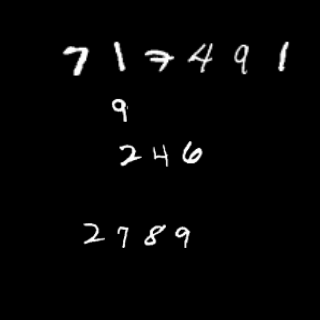 717491
9
246
2789